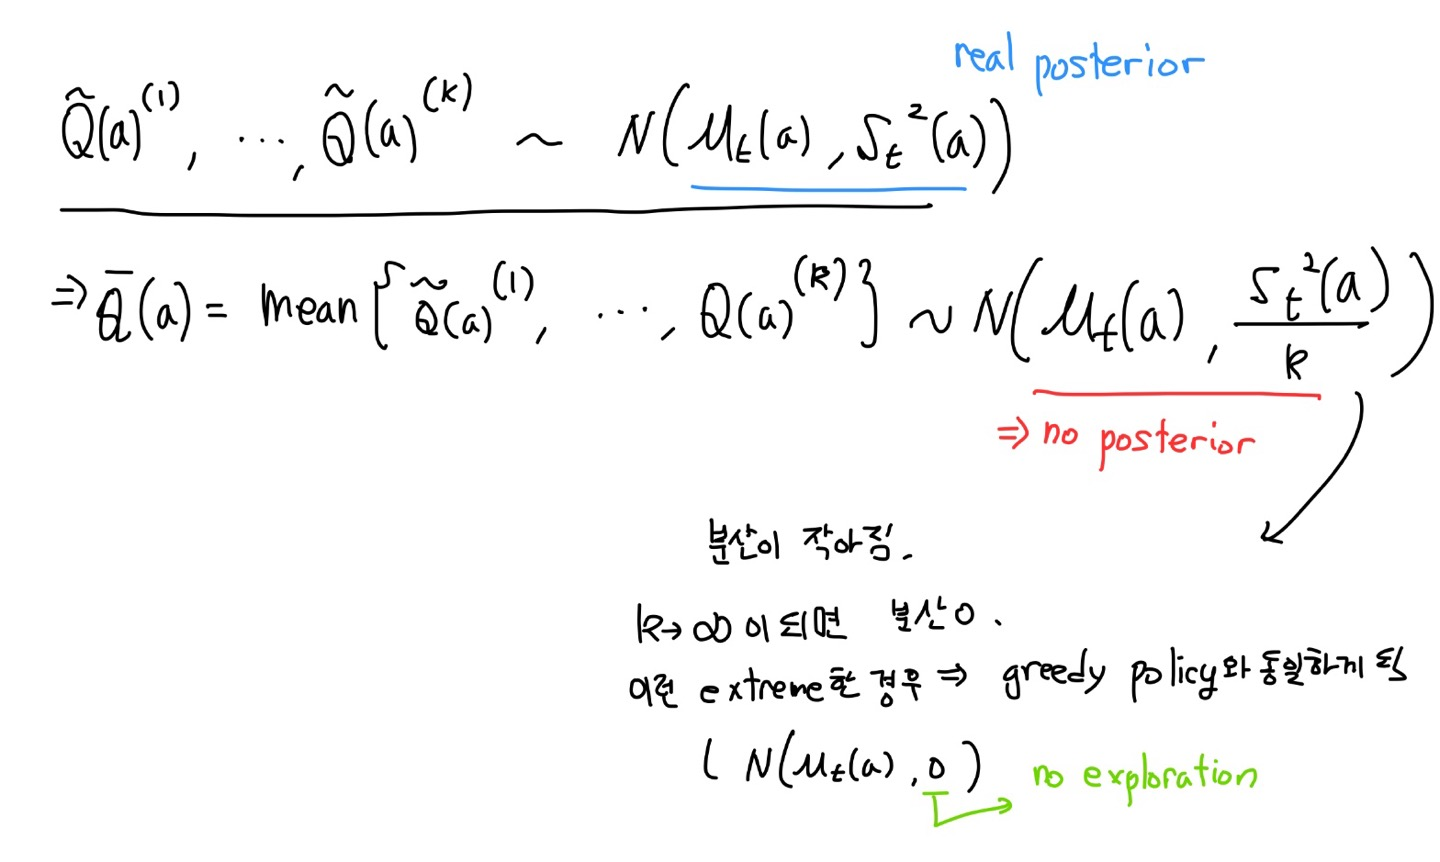 real posterior
Q̃(a)^(1), ⋯, Q̃(a)^(k) ~ N(μ_t(a), S_t²(a))
⇒ Q̄(a) = mean{Q̃(a)^(1), ⋯, Q(a)^(k)} ~ N(μ_t(a), S_t²(a)/k)
⇒ no posterior
분산이 작아짐.
k→∞이 되면 분산 0.
이런 extreme한 경우 ⇒ greedy policy와 동일하게 됨
( N(μ_t(a), 0)
no exploration